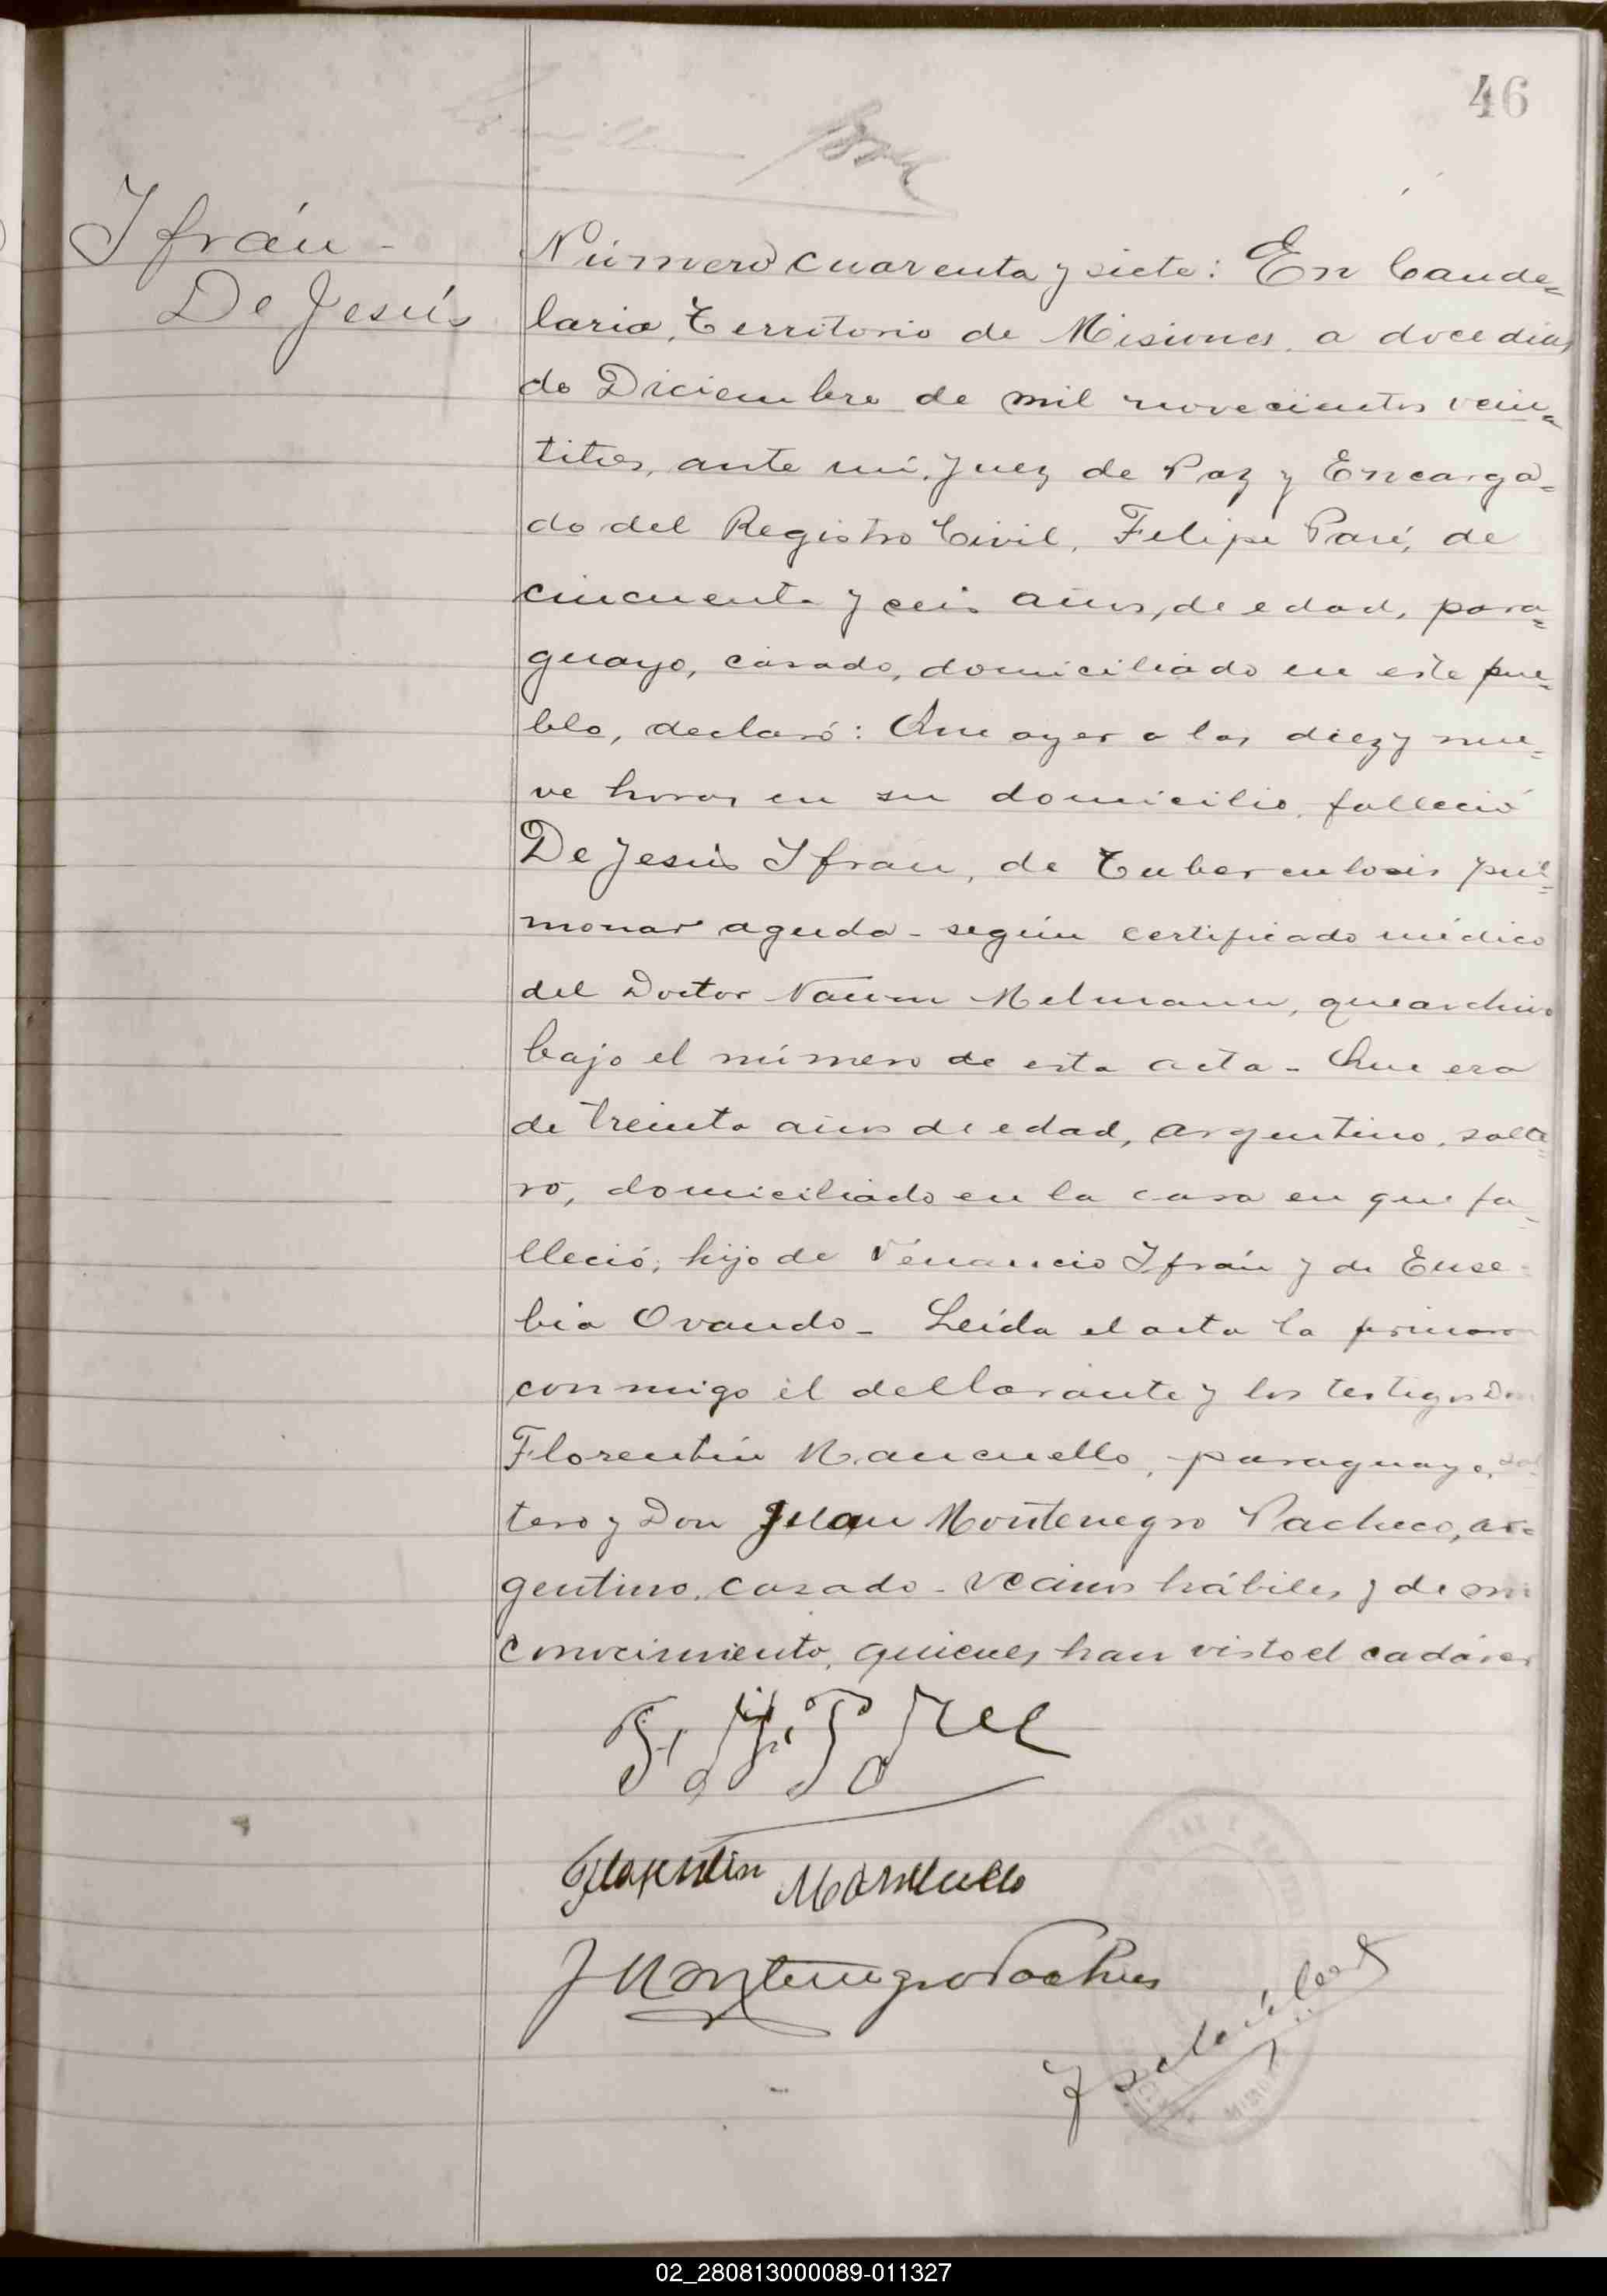 46
Ifrán -
De Jesús
Número cuarenta y siete: En Cande=
laria, Territorio de Misiones, a doce dias
de Diciembre de mil novecientos vein=
titres, ante mi, Juez de Paz y Encarga=
do del Registro Civil, Felipe Paré, de
cincuenta y seis años, de edad, para=
guayo, casado, domiciliado en este pue=
blo, declaró: Que ayer a las diez y nue=
ve horas en su domicilio falleció
De Jesús Ifran, de Tuberculosis pul=
monar aguda - según certificado médico
del Doctor Naum Melmann, que archivo
bajo el número de esta acta - Que era
de treinta años de edad, argentino, solte=
ro, domiciliado en la casa en que fa=
lleció, hijo de Venancio Ifrán y de Euse=
bia Ovando - Leída el acta la firmaron
conmigo el declarante y los testigos Don
Florentín Mancuello, paraguayo, sol=
tero y Don Juan Montenegro Pacheco, ar=
gentino, casado - vecinos hábiles y de mi
conocimiento, quienes han visto el cadáver
Florentin Mancuello
J Montenegro Pacheco
02_280813000089-011327